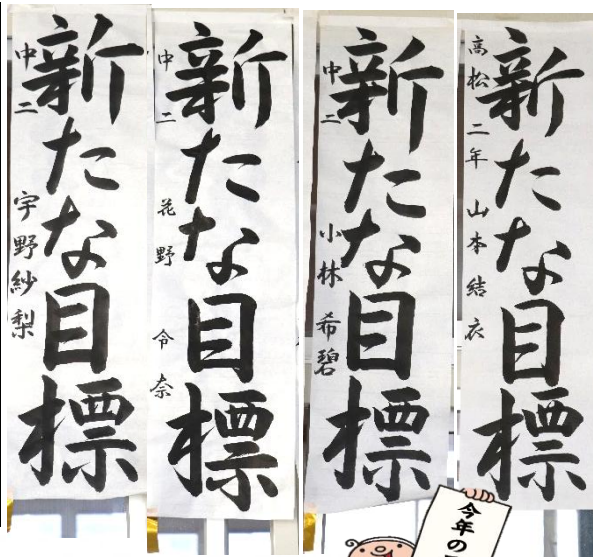 新たな目標
中二 宇野紗梨
新たな目標
中二 花野 令奈
新たな目標
中二 小林希碧
新たな目標
高松二年 山本結衣
今年の